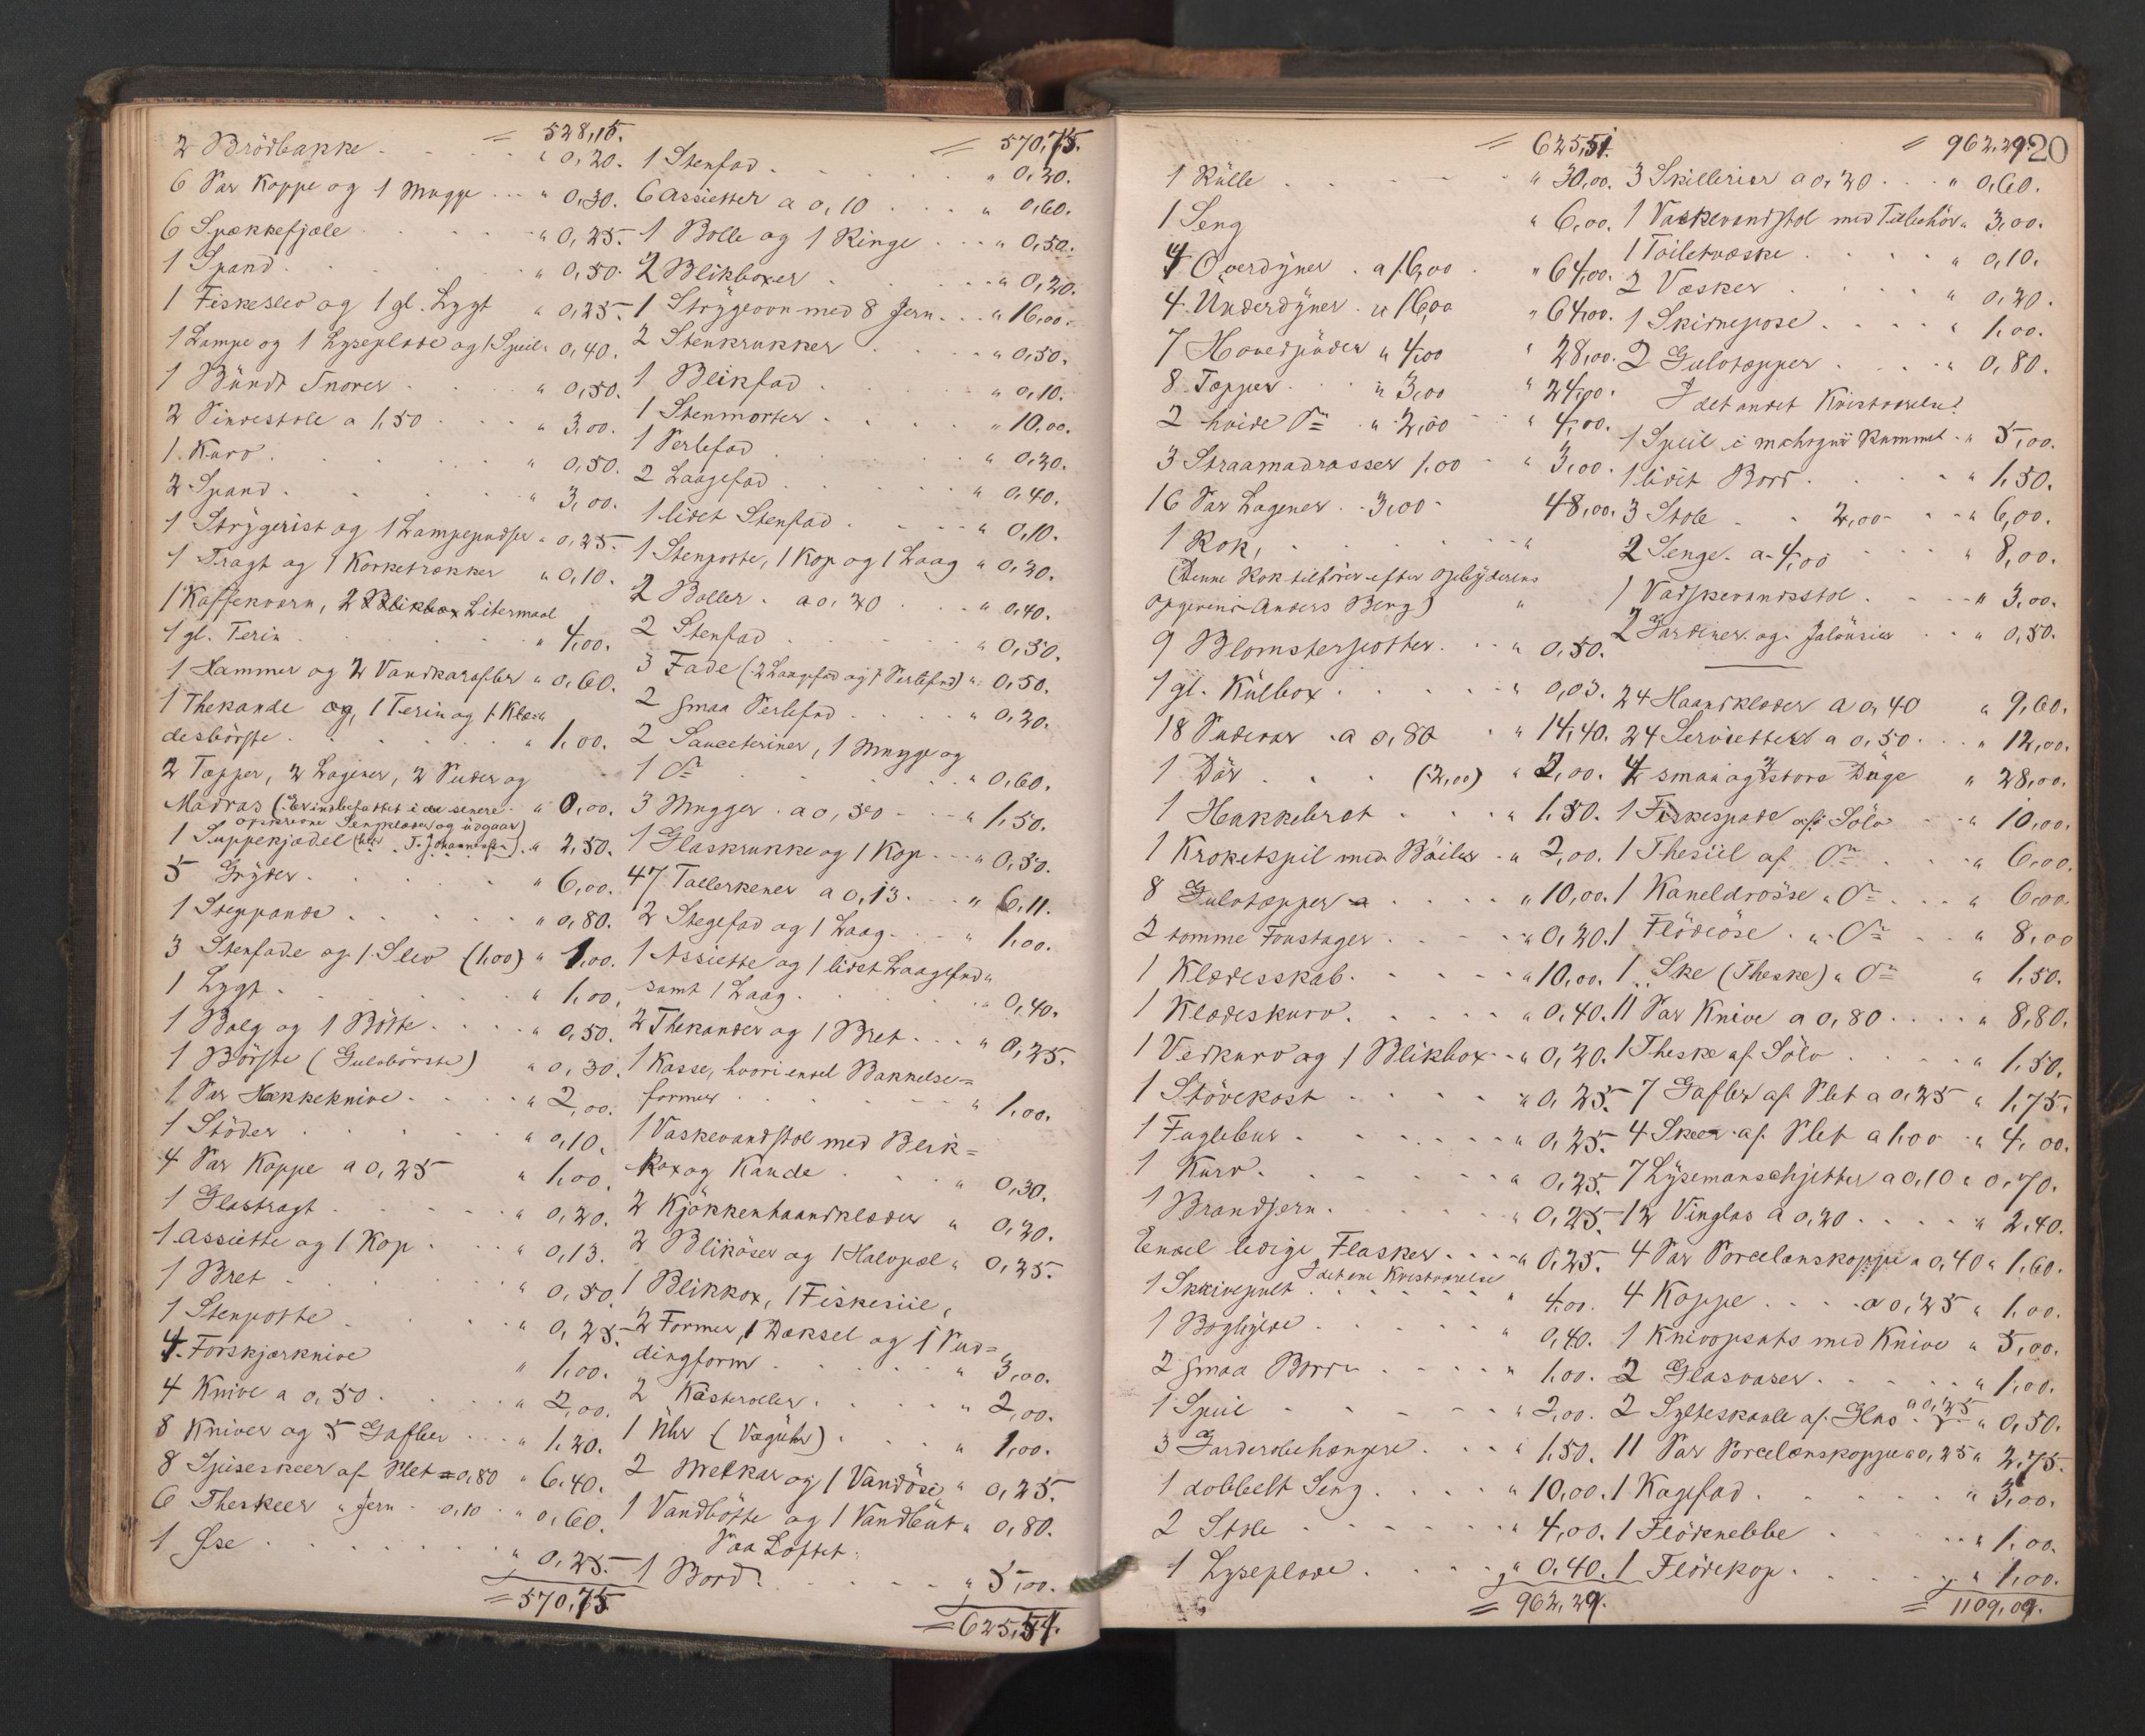 = 528,15.
2 Brödbakke " 0,20.
6 Par Koppe og 1 Mugge " 0,30.
6 Spækkefjæle " 0,25.
1 Spand " 0,50.
1 Fiskeslev og 1 gl. Lygt " 0,25.
1 Lampe og 1 Lyseplade og 1 Speil " 0,40.
1 Bundt Snorer " 0,50.
2 Pindestole a 1,50 " 3,00.
1 Kurv " 0,50.
2 Spand " 3,00.
1 Strygerist og 1 Lampepudser " 0,25.
1 Tragt og 1 Korketrækker " 0,10.
1 Kaffekværn, 2 Blikbox Litermaal
1 gl. Terin " 4,00.
1 Hammer og 2 Vandkarafler " 0,60.
1 Thekande og 1 Terin og 1 Klæ=
desbörste " 1,00.
2 Tæpper, 2 Lagener, 2 Puder og
Madras (Er indbefattet i de senere " 0,00.
opskrevne Sengklæder og udgaar)
1 Suppekjedel " 2,50.
5 Gryder " 6,00.
1 Stegpande " 0,80.
3 Stenfade og 1 Slev (1,00) " 1,00.
1 Lygt " 1,00.
1 Balg og 1 Bötte " 0,50.
1 Börste (Gulvbörste) " 0,30.
1 Par Hakkeknive " 2,00.
1 Stöder " 0,10.
4 Par Koppe a 0,25 " 1,00.
1 Glastragt " 0,20.
1 Assiette og 1 Kop " 0,13.
1 Bret " 0,50.
1 Stenpotte " 0,25.
4 Forskjærknive " 1,00.
4 Knive a 0,50 " 2,00.
8 Kniver og 5 Gafler " 1,20.
8 Spiseskeer af Plet a 0,80 " 6,40.
6 Theskeer " Jern - 0,10 " 0,60.
1 Øse " 0,25.
= 570,75.
= 570,75.
1 Stenfad " 0,20.
6 Assietter a 0,10 " 0,60.
1 Bolle og 1 Ringe " 0,50.
2 Blikboxer " 0,20.
1 Strygeovn med 8 Jern " 16,00.
2 Stenkrukker " 0,50.
1 Blikfad " 0,10.
1 Stenmorter " 10,00.
1 Perlefad " 0,20.
2 Laagefad " 0,40.
1 lidet Stenfad " 0,10.
1 Stenpotte, 1 Kop og 1 Laag " 0,30.
2 Boller a 0,20 " 0,40.
2 Stenfad " 0,30.
3 Fade (2 Laagefad og 1 Perlefad) " 0,50.
2 smaa Perlefad " 0,20.
2 Sauceteriner, 1 Mugge og
1 Do " 0,60.
3 Mugger a 0,50 " 1,50.
1 Glaskrukke og 1 Kop " 0,30.
47 Tallerkener a 0,13 " 6,11.
2 Stegefad og 1 Laag " 1,00.
1 Assiette og 1 lidet Laagefad
samt 1 Laag " 0,40.
2 Thekander og 1 Bret " 0,25.
1 Kasse, hvori endel Bakkelse=
former " 1,00.
1 Vaskevandstol med Blik=
box og Kande " 0,30.
2 Kjökkenhaandklæder " 0,20.
2 Bliköser og 1 Halvpæl " 0,25.
1 Blikbox, 1 Fiskesiil,
2 Former, 1 Dæksel og 1 Pud=
dingform " 3,00.
2 Kasteroller " 2,00.
1 Uhr (Væguhr) " 1,00.
2 Melkar og 1 Vandöse " 0,25.
1 Vandbötte og 1 Vandbut " 0,80.
Paa Loftet:
1 Bord " 5,00.
= 625,51.
= 625,51.
1 Rulle " 30,00.
1 Seng " 6,00.
4 Overdyner a 16,00 " 64,00.
4 Underdyner " 16,00 " 64,00.
7 Hovedpuder " 4,00 " 28,00.
8 Tæpper " 3,00 " 24,00.
2 hvide Do " 2,00 " 4,00.
3 Straamadrasser 1,00 " 3,00.
16 Par Lagener - 3,00 - 48,00.
1 Rok, "
(Denne Rok tilhörer efter Opbyderens
opgivende Anders Berg) "
9 Blomsterpotter " 0,50.
1 gl. Kulbox " 0,03.
18 Pudevar a 0,80 " 14,40.
1 Dör (2,00) " 2,00.
1 Hakkebret " 1,50.
1 Kroketspil med Böiler " 2,00.
8 Gulvtæpper " 10,00.
2 tomme Foustager " 0,20.
1 Klædesskab " 10,00.
1 Klædeskurv " 0,40.
1 Vedkurv og 1 Blikbox " 0,20.
1 Stövekost " 0,25.
1 Fuglebur " 0,25.
1 Kurv " 0,25.
1 Brandjern " 0,25.
Endel ledige Flasker " 0,25.
I det ene Kvistværelse
1 Skrivepult " 4,00.
1 Boghylde " 0,40.
2 smaa Borde " 1,00.
1 Speil " 2,00.
3 Garderobehængere " 1,50.
1 dobbelt Seng " 10,00.
2 Stole " 4,00.
1 Lyseplade " 0,40.
= 962,29.
= 962,29.
20
3 Skillerier a 0,20 " 0,60.
1 Vaskevandstol med Tilbehör " 3,00.
1 Toiletvæske " 0,10.
2 Væsker " 0,20.
1 Skindpose " 1,00.
2 Gulvtæpper " 0,80.
I det andet Kvistværelse:
1 Speil i mahogni Rammel " 5,00.
1 lidet Bord " 1,50.
3 Stole " 2,00 " 6,00.
2 Senge a 4,00 " 8,00.
1 Vaskevandsstol " 3,00.
2 Gardiner og Jalousier " 0,50.
24 Haandklæder a 0,40 " 9,60.
24 Servietter a 0,50 " 12,00.
4 smaa og 2 store Duge " 28,00.
1 Fiskespade af Sölv " 10,00.
1 Thesiil af Do " 6,00.
1 Kaneldaase " Do " 6,00.
1 Flödeöse " Do " 8,00
1 Ske (Theske) " Do " 1,50.
11 Par Knive a 0,80 " 8,80.
1 Theske af Sölv " 1,50.
7 Gafler af Plet a 0,25 " 1,75.
4 Skeer af Plet a 1,00 " 4,00.
7 Lysemanschjetter a 0,10 " 0,70.
12 Vinglas a 0,20 " 2,40.
4 Par Porcelænskoppe a 0,40 " 1,60.
4 Koppe a 0,25 " 1,00.
1 Knivopsats med Knive " 5,00.
2 Glasvaser " 1,00.
2 Sylteskaale af Glas a 0,25 " 0,50.
11 Par Porcelænskoppe a 0,25 " 2,75.
1 Kagefad " 3,00.
1 Flödenebbe " 1,00.
1 Flödekop " 1,00.
= 1109,09.